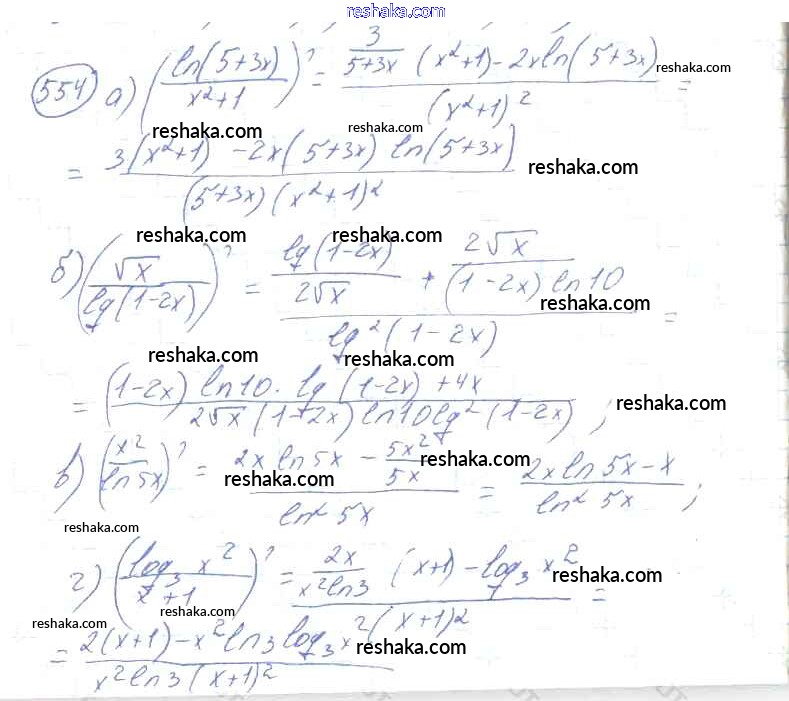 reshaka.com
554 а) (ln(5+3x)/(x²+1))' = (3/(5+3x) (x²+1) - 2x ln(5+3x))/(x²+1)² =
reshaka.com
reshaka.com
reshaka.com
= (3(x²+1) - 2x(5+3x) ln(5+3x))/((5+3x)(x²+1)²)
reshaka.com
reshaka.com
reshaka.com
б) (√x/lg(1-2x))' = (lg(1-2x)/(2√x) + 2√x/((1-2x) ln10))/lg²(1-2x) =
reshaka.com
reshaka.com
reshaka.com
= ((1-2x) ln10 · lg(1-2x) + 4x)/(2√x (1-2x) ln10 lg²(1-2x));
reshaka.com
в) (x²/ln5x)' = (2x ln5x - 5x²/5x)/ln²5x = (2x ln5x - x)/ln²5x;
reshaka.com
reshaka.com
reshaka.com
г) (log₃x²/(x+1))' = (2x/(x²ln3) (x+1) - log₃x²)/(x+1)² =
reshaka.com
reshaka.com
reshaka.com
= (2(x+1) - x²ln3 log₃x²)/(x²ln3(x+1)²)
reshaka.com